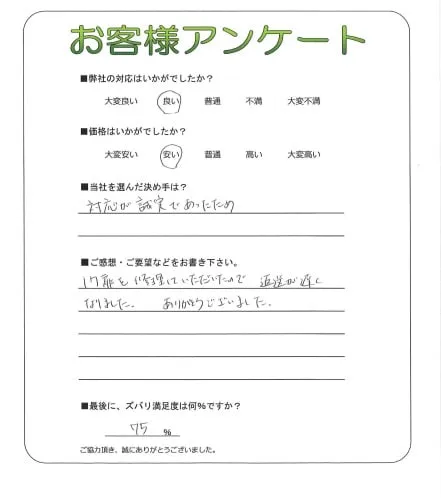 お客様アンケート
■弊社の対応はいかがでしたか？
大変良い 良い 普通 不満 大変不満
■価格はいかがでしたか？
大変安い 安い 普通 高い 大変高い
■当社を選んだ決め手は？
対応が誠実であったため
■ご感想・ご要望などをお書き下さい。
を修理していただいたので 返送が遅く
なりました。 ありがとうございました。
■最後に、ズバリ満足度は何％ですか？
75 ％
ご協力頂き、誠にありがとうございました。